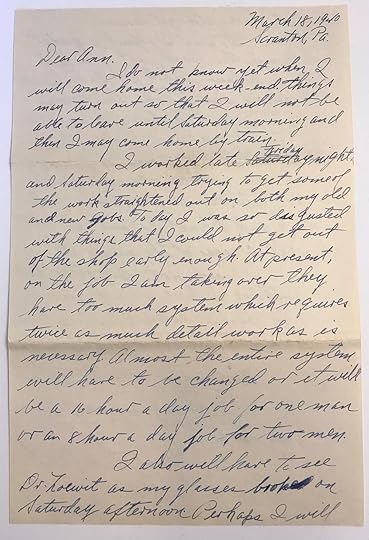 March 18, 1940
Scranton, Pa.
Dear Ann.
I do not know yet when I
will come home this week-end, things
may turn out so that I will not be
able to leave until Saturday morning and
then I may come home by train.
I worked late Friday night
and Saturday morning trying to get some of
the work straightened out on both my old
and new jobs. To day I was so disgusted
with things that I could not get out
of the shop early enough. At present,
on the job I am taking over they
have too much system which requires
twice as much detail work as is
necessary. Almost the entire system
will have to be changed or it will
be a 16 hour a day job for one man
or an 8 hour a day job for two men.
I also will have to see
Dr. as my glasses broke on
Saturday afternoon. Perhaps I will